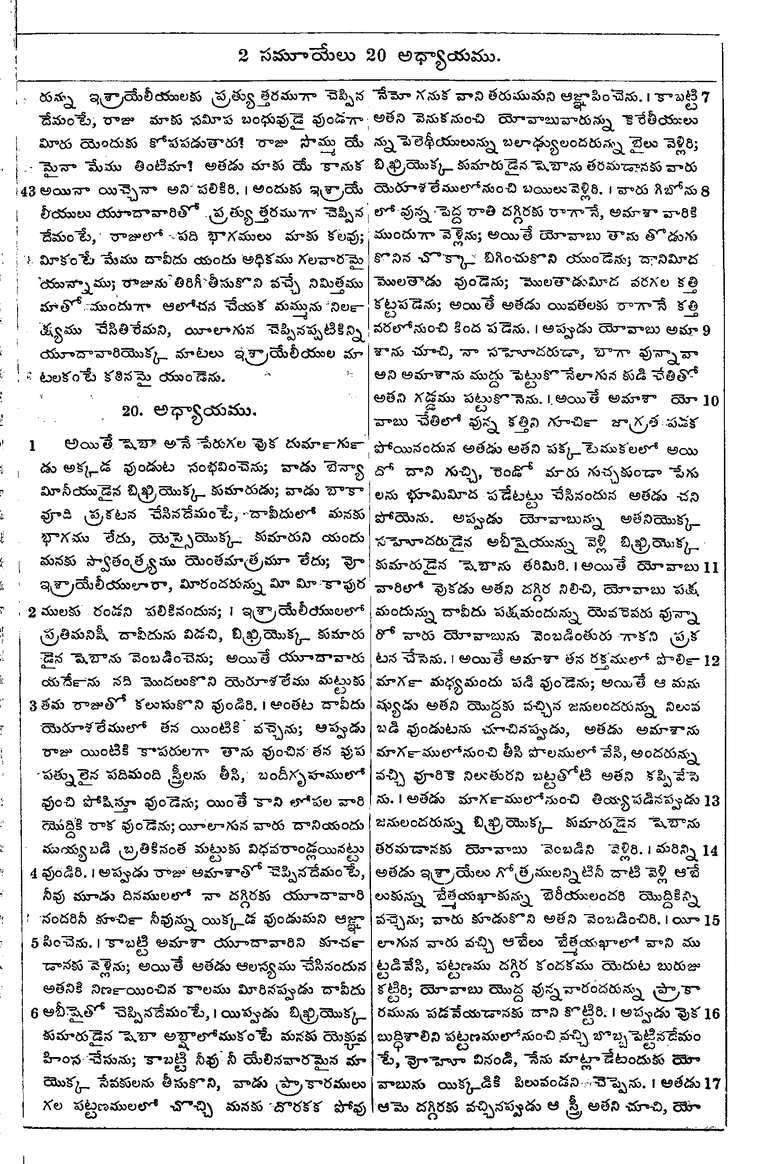 2 సమూయేలు 20 అధ్యాయము.
రున్ను ఇశ్రాయేలీయులకు ప్రత్యుత్తరముగా చెప్పిన
దేమంటే, రాజు మాకు సమీప బంధువుడై వుండగా
మీరు యెందుకు కోపపడుతారు? రాజు సొమ్ము యే
మైనా మేము తింటిమా! అతడు మాకు యే కానుక
43 అయినా యిచ్చెనా అని పలికిరి. । అందుకు ఇశ్రాయే
లీయులు యూదావారితో ప్రత్యుత్తరముగా చెప్పిన
దేమంటే, రాజులో పది భాగములు మాకు కలవు;
మీకంటే మేము దావీదు యందు అధికము గలవారమై
యున్నాము; రాజును తిరిగీ తీసుకొని వచ్చే నిమిత్తము
మాతో ముందుగా ఆలోచన చేయక మమ్మును నిల౯
క్ష్యము చేసితిరేమని, యీలాగున చెప్పినప్పటికిన్ని
యూదావారియొక్క మాటలు ఇశ్రాయేలీయుల మా
టలకంటే కఠినమై యుండెను.
20. అధ్యాయము.
1 అయితే షెబా అనే పేరుగల వొక దుమా౯గు౯
డు అక్కడ వుండుట సంభవించెను; వాడు బెన్యా
మీనీయుడైన బిఖ్రియొక్క కుమారుడు; వాడు బాకా
వూది ప్రకటన చేసినదేమంటే, దావీదులో మనకు
భాగము లేదు, యెస్సైయొక్క కుమారుని యందు
మనకు స్వాతంత్ర్యము యెంతమాత్రమూ లేదు; వో
ఇశ్రాయేలీయులారా, మీరందరున్ను మీ మీ కాపుర
2 ములకు రండని పలికినందున; । ఇశ్రాయేలీయులలో
ప్రతిమనిషీ దావీదును విడచి, బిఖ్రియొక్క కుమారు
డైన షెబాను వెంబడించెను; అయితే యూదావారు
యదే౯ను నది మొదలుకొని యెరూశలేము మట్టుకు
3 తమ రాజుతో కలుసుకొని వుండిరి. । అంతట దావీదు
యెరూశలేములో తన యింటికి వచ్చెను; అప్పుడు
రాజు యింటికి కాపరులగా తాను వుంచిన తన వుప
పత్నులైన పదిమంది స్త్రీలను తీసి, బందీగృహములో
వుంచి పోషిస్తూ వుండెను; యింతే కాని లోపల వారి
యొద్దికి రాక వుండెను; యీలాగున వారు దానియందు
ముయ్యబడి బ్రతికినంత మట్టుకు విధవరాండ్లయినట్టు
4 వుండిరి. । అప్పుడు రాజు అమాశాతో చెప్పినదేమంటే,
నీవు మూడు దినములలో నా దగ్గిరకు యూదావారి
నందరినీ కూచి౯ నీవున్ను యిక్కడ వుండుమని ఆజ్ఞా
5 పించెను. । కాబట్టి అమాశా యూదావారిని కూచ౯
డానకు వెళ్లెను; అయితే అతడు ఆలస్యము చేసినందున
అతనికి నిణ౯యించిన కాలము మీరినప్పుడు దావీదు
6 అబీషైతో చెప్పినదేమంటే, । యిప్పుడు బిఖ్రియొక్క
కుమారుడైన షెబా అబ్షాలోముకంటే మనకు యెక్కువ
హింస చేసును; కాబట్టి నీవు నీ యేలినవారమైన మా
యొక్క సేవకులను తీసుకొని, వాడు ప్రాకారములు
గల పట్టణములలో చొచ్చి మనకు దొరకక పోవు
నేమో గనుక వాని తరుముమని ఆజ్ఞాపించెను. । కాబట్టి 7
అతని వెనుకనుంచి యోవాబువారున్ను కెరేతీయులు
న్ను పెలెథీయులున్ను బలాఢ్యులందరున్ను బైలు వెళ్లిరి;
బిఖ్రియొక్క కుమారుడైన షెబాను తరమడానకు వారు
యెరూశలేములోనుంచి బయిలువెళ్లిరి. । వారు గిబోను 8
లో వున్న పెద్ద రాతి దగ్గిరకు రాగానే, అమాశా వారికి
ముందుగా వెళ్లెను; అయితే యోవాబు తాను తొడుగు
కొనిన చొక్కా బిగించుకొని యుండెను; దానిమీద
మొలతాడు వుండెను; మొలతాడుమీద వరగల కత్తి
కట్టపడెను; అయితే అతడు యివతలకు రాగానే కత్తి
వరలోనుంచి కింద పడెను. । అప్పుడు యోవాబు అమా 9
శాను చూచి, నా సహోదరుడా, బాగా వున్నావా
అని అమాశాను ముద్దు పెట్టుకొనేలాగున కుడి చేతితో
అతని గడ్డము పట్టుకొనెను. । అయితే అమాశా యో 10
వాబు చేతిలో వున్న కత్తిని గూచి౯ జాగ్రత పడక
పోయినందున అతడు అతని పక్కటెముకలలో అయి
దో దాని గుచ్చి, రెండో మారు గుచ్చకుండా పేగు
లను భూమిమీద పడేటట్టు చేసినందున అతడు చని
పోయెను. అప్పుడు యోవాబున్ను అతనియొక్క
సహోదరుడైన అబీషైయున్ను వెళ్లి బిఖ్రియొక్క
కుమారుడైన షెబాను తరిమిరి. । అయితే యోవాబు 11
వారిలో వొకడు అతని దగ్గిర నిలిచి, యోవాబు పక్ష
మందున్ను దావీదు పక్షమందున్ను యెవరెవరు వున్నా
రో వారు యోవాబును వెంబడింతురు గాకని ప్రక
టన చేసెను. । అయితే అమాశా తన రక్తములో పొలి౯ 12
మాగ౯ మధ్యమందు పడి వుండెను; అయితే ఆ మను
ష్యుడు అతని యొద్దకు వచ్చిన జనులందరున్ను నిలువ
బడి వుండుటను చూచినప్పుడు, అతడు అమాశాను
మాగ౯ములోనుంచి తీసి పొలములో వేసి, అందరున్ను
వచ్చి వూరికె నిలుతురని బట్టతోటి అతని కప్పివేసె
ను. । అతడు మాగ౯ములోనుంచి తియ్యపడినప్పుడు 13
జనులందరున్ను బిఖ్రియొక్క కుమారుడైన షెబాను
తరమడానకు యోవాబు వెంబడిని వెళ్లిరి. । మరిన్ని 14
అతడు ఇశ్రాయేలు గోత్రములన్నిటినీ దాటి వెళ్లి ఆబే
లుకున్ను బేత్మయఖాకున్ను బెరీయులందరి యొద్దికిన్ని
వచ్చెను; వారు కూడుకొని అతని వెంబడించిరి. । యీ 15
లాగున వారు వచ్చి ఆబేలు బేత్మయఖాలో వాని ము
ట్టడివేసి, పట్టణము దగ్గిర కందకము యెదుట బురుజు
కట్టిరి; యోవాబు యొద్ద వున్నవారందరున్ను ప్రాకా
రమును పడవేయడానకు దాని కొట్టిరి. । అప్పుడు వొక 16
బుద్ధిశాలిని పట్టణములోనుంచి వచ్చి బొబ్బపెట్టినదేమం
టే, వోహో వినండి, నేను మాట్లాడేటందుకు యో
వాబును యిక్కడికి పిలువండని చెప్పెను. । అతడు 17
ఆమె దగ్గిరకు వచ్చినప్పుడు ఆ స్త్రీ అతని చూచి, యో